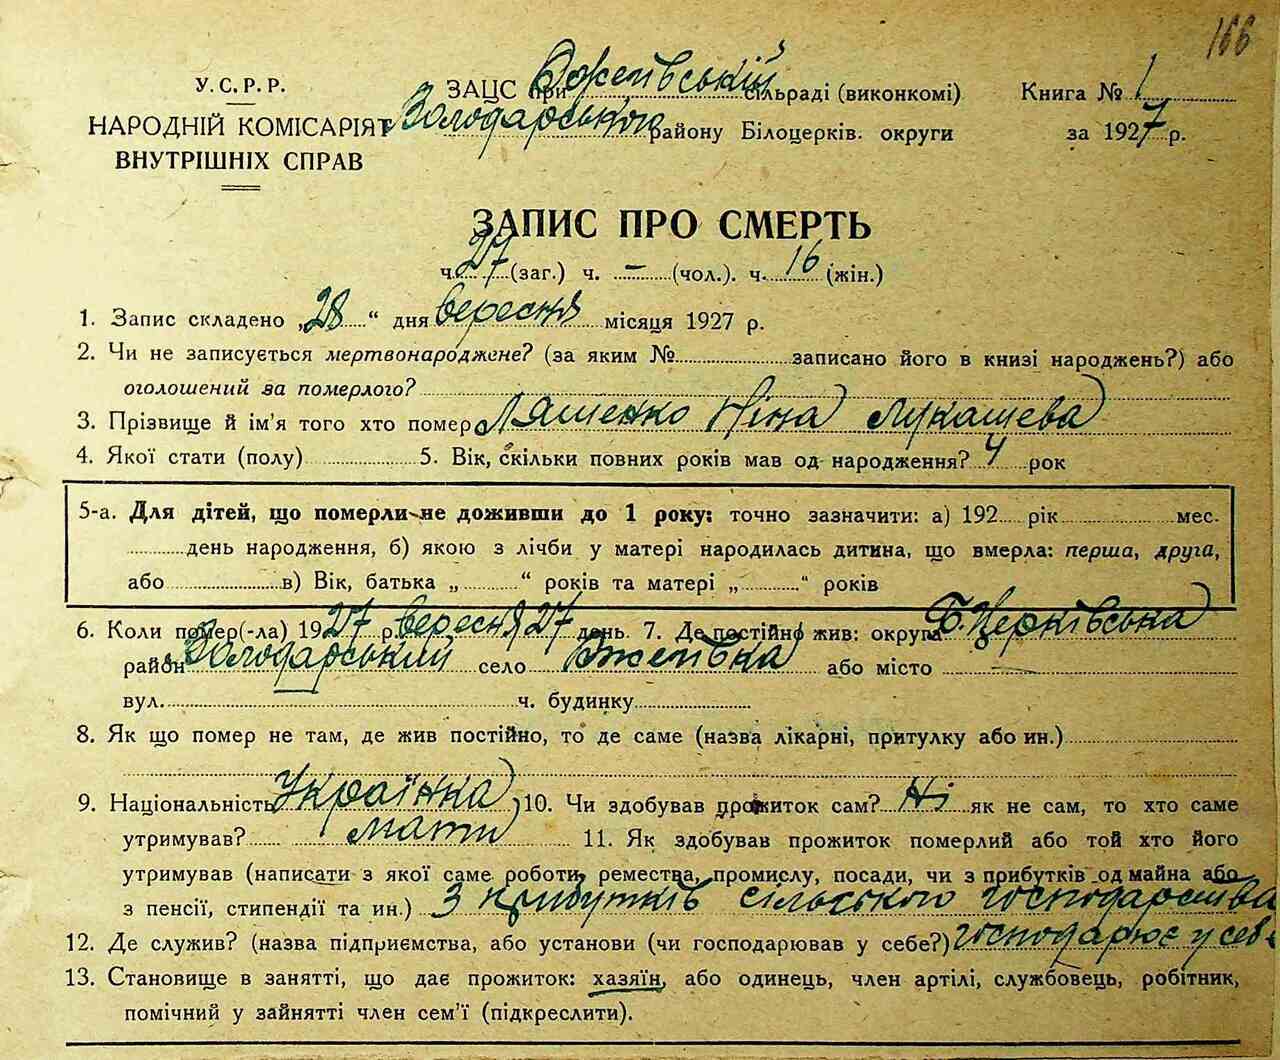 166
У.С.Р.Р.
НАРОДНІЙ КОМІСАРІЯТ
ВНУТРІШНІХ СПРАВ
ЗАЦС при Вжеївській сільраді (виконкомі)
Володарського району Білоцерків. округи
Книга № 1
за 1927 р.
ЗАПИС ПРО СМЕРТЬ
ч. 27 (заг.) ч. – (чол.). ч. 16 (жін.)
1. Запис складено „28“ дня вересня місяця 1927 р.
2. Чи не записується мертвонароджене? (за яким № записано його в книзі народжень?) або
оголошений за померлого?
3. Прізвище й ім'я того хто помер Ляшенко Ніна Лукашева
4. Якої стати (полу) 5. Вік, скільки повних років мав од народження? 4 рок
5-а. Для дітей, що померли не доживши до 1 року: точно зазначити: а) 192 рік мес.
день народження, б) якою з лічби у матері народилась дитина, що вмерла: перша, друга,
або в) Вік, батька „ “ років та матері „ “ років
6. Коли помер(-ла) 1927 р. вересня 27 день. 7. Де постійно жив: округа Б.Церківська
район Володарський село Вжеївка або місто —
вул. ч. будинку
8. Як що помер не там, де жив постійно, то де саме (назва лікарні, притулку або ин.)
9. Національність Українка 10. Чи здобував прожиток сам? Ні як не сам, то хто саме
утримував? мати 11. Як здобував прожиток померлий або той хто його
утримував (написати з якої саме роботи, ремества, промислу, посади, чи з прибутків од майна або
з пенсії, стипендії та ин.) З прибутків сільського господарства
12. Де служив? (назва підприємства, або установи (чи господарював у себе?) господарює у себе
13. Становище в занятті, що дає прожиток: хазяїн, або одинець, член артілі, службовець, робітник,
помічний у зайнятті член сем'ї (підкреслити).